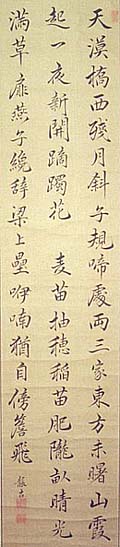 天漠橋西殘月斜子規啼處兩三家東方未曙山霞
起一夜新開躑躅花　麦苗抽穂稲苗肥隴畝晴光
満草扉燕子纔辞梁上壘呷喃猶自傍簷飛